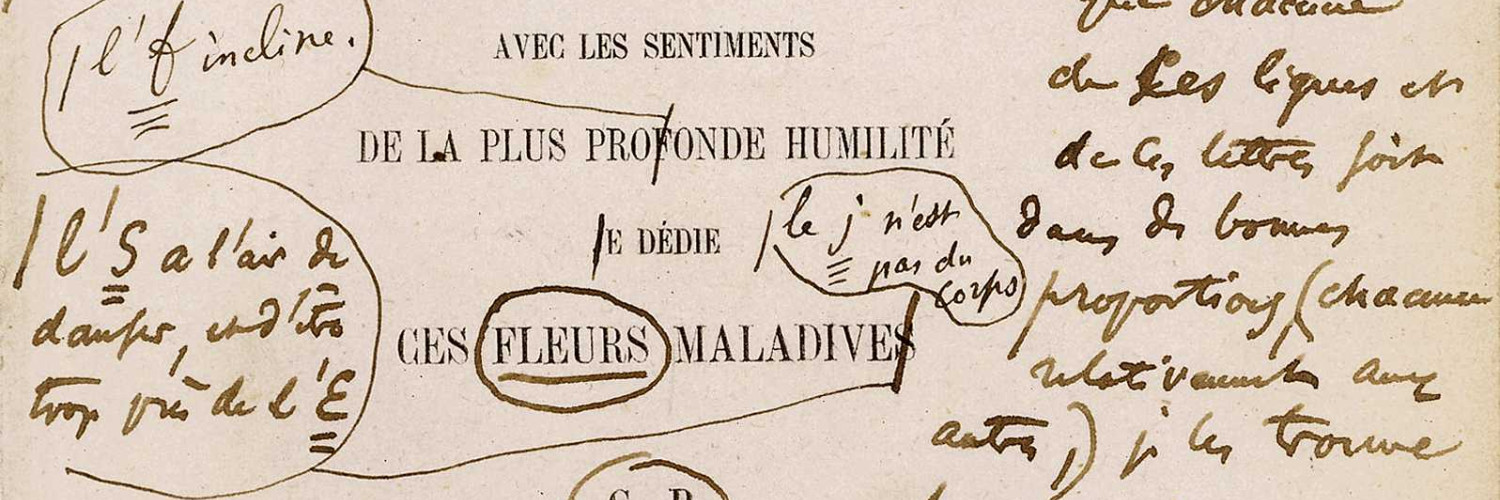 l'f incline.
AVEC LES SENTIMENTS
DE LA PLUS PROFONDE HUMILITÉ
JE DÉDIE
le j n'est
pas du
corps
l'S a l'air de
danser, et d'être
trop près de l'E
CES FLEURS MALADIVES
C. B.
que chacune
de ces lignes et
de ces lettres soit
dans de bonnes
proportions (chacune
relativement aux
autres,) je les trouve